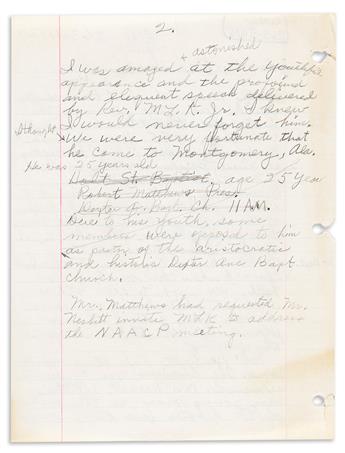 2.
& astonished
I was amazed at the youthful
appearance and the profound
and eloquent speech delivered
by Rev. M L K. Jr. I knew
I thought I would never forget him.
We were very fortunate that
he come to Montgomery, Ala.
He was 25 years old
St. Baptist, age 25 Year
Robert Matthews Pres.
Dexter A. Bapt. Ch. 11 AM.
Due to his youth, some
members were opposed to him
as pastor of the aristocratic
and historic Dexter Ave Bapt
church.
Mr. Matthews had requested Mr.
Nesbitt invite MLK to address
the NAACP meeting.